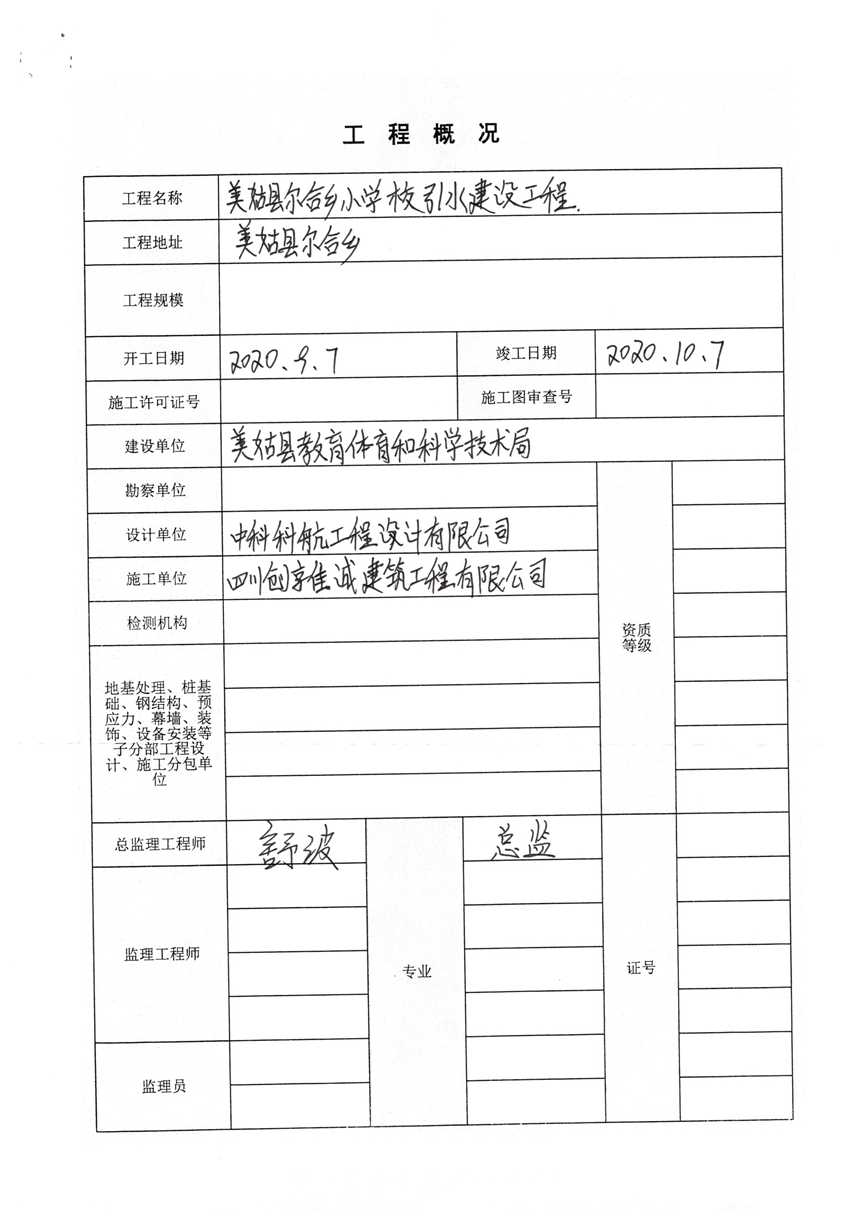 工程概况
工程名称 美姑县尔合乡小学校引水建设工程.
工程地址 美姑县尔合乡
工程规模
开工日期 2020、9、7 竣工日期 2020、10、7
施工许可证号 施工图审查号
建设单位 美姑县教育体育和科学技术局
勘察单位
设计单位 中科科航工程设计有限公司
施工单位 四川创享佳诚建筑工程有限公司
检测机构
资质
等级
地基处理、桩基
础、钢结构、预
应力、幕墙、装
饰、设备安装等
子分部工程设
计、施工分包单
位
总监理工程师 舒波 总监
监理工程师
专业
证号
监理员